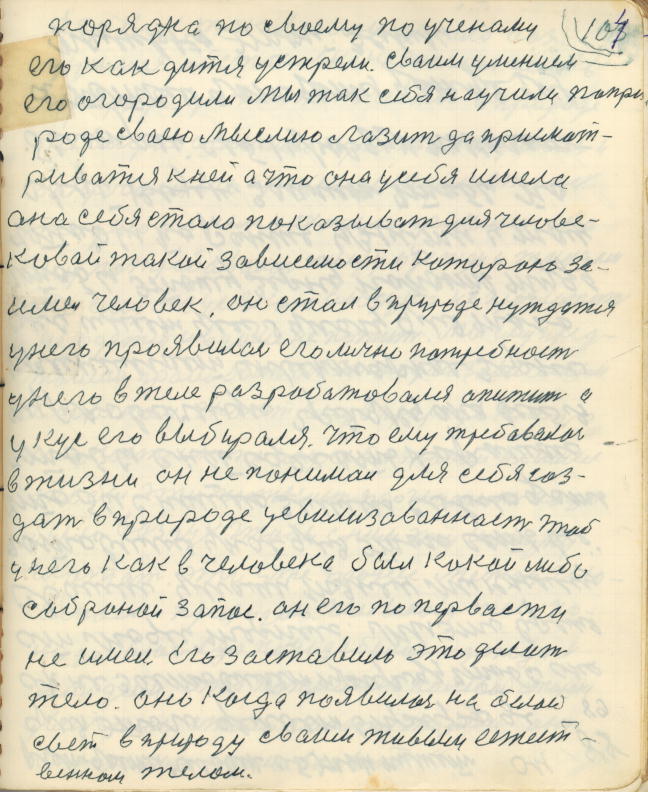 порядка по своему по ученаму 104
его как дитя устрели. сваим умением
его огородили мы так себя научили попри
роде сваею мыслию лазит да присмат-
риватся к ней а что она у себя имела
она себя стало показыват для челове-
ковай такой зависемости которою за-
имел человек, он стал в природе нуждатся
у него проявилас его лично потребност
у него в теле разработовался опитит а
у кус его выбирался. что ему требавалос
в жизни он не понимал для себя соз-
дат в природе цевилизованност чтоб
у него как в человека был какой либо
собраной запос. он его по первасти
не имел. Его заставило это делит
тело. оно когда появилос на белай
свет в природу сваим живым естест-
венном телом.